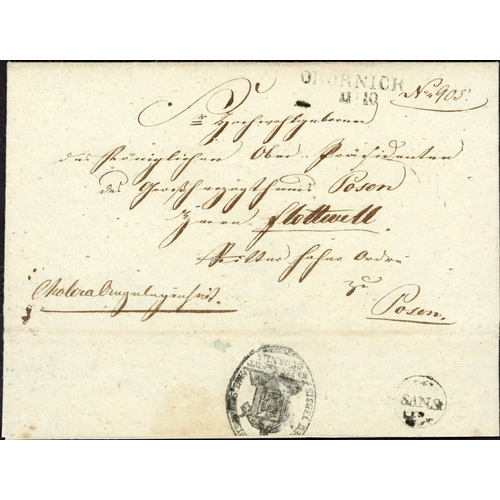 OBORNICK
No 905.
Sr Hochwohlgeboren
des Königlichen Ober Präsidenten
des Großherzogthums Posen
Herrn Flottwell
Ritter hoher Orden
zu
Cholera Angelegenheit.
Posen.
SAN.S